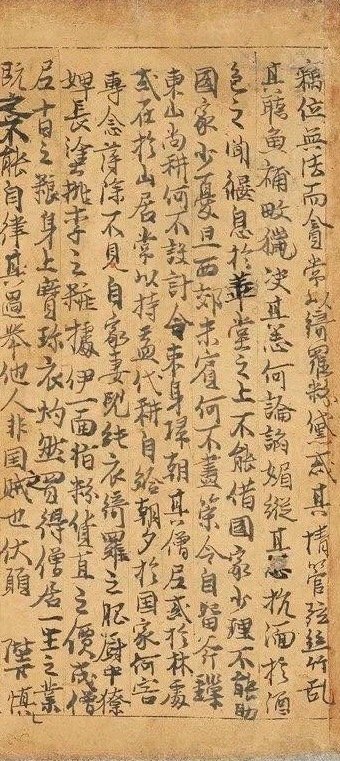 竊位無法而食常以綺羅粉黛惑其情管弦絲竹乱
其聽魚捕畋獵使其惡何論諂媚縱其惡抗湎於酒
色之間偃息於華堂之上不能借國家少理不能助
國家少憂且西郊未賓何不盡策令自留
東山尚耕何不設計令來身歸朝其僧居或於林處
或在於山居常以持盂代耕自給朝夕於國家何害
專念薄除不見自家妻兒純衣綺羅之服廚中
婢長塗桃李之粧據伊一面拍粉貨直之價戍僧
居十日之粮身上寶珎衣灼然買得僧居一生之業
既不能自律其過舉他人非国賊也伏願 陛下慎之